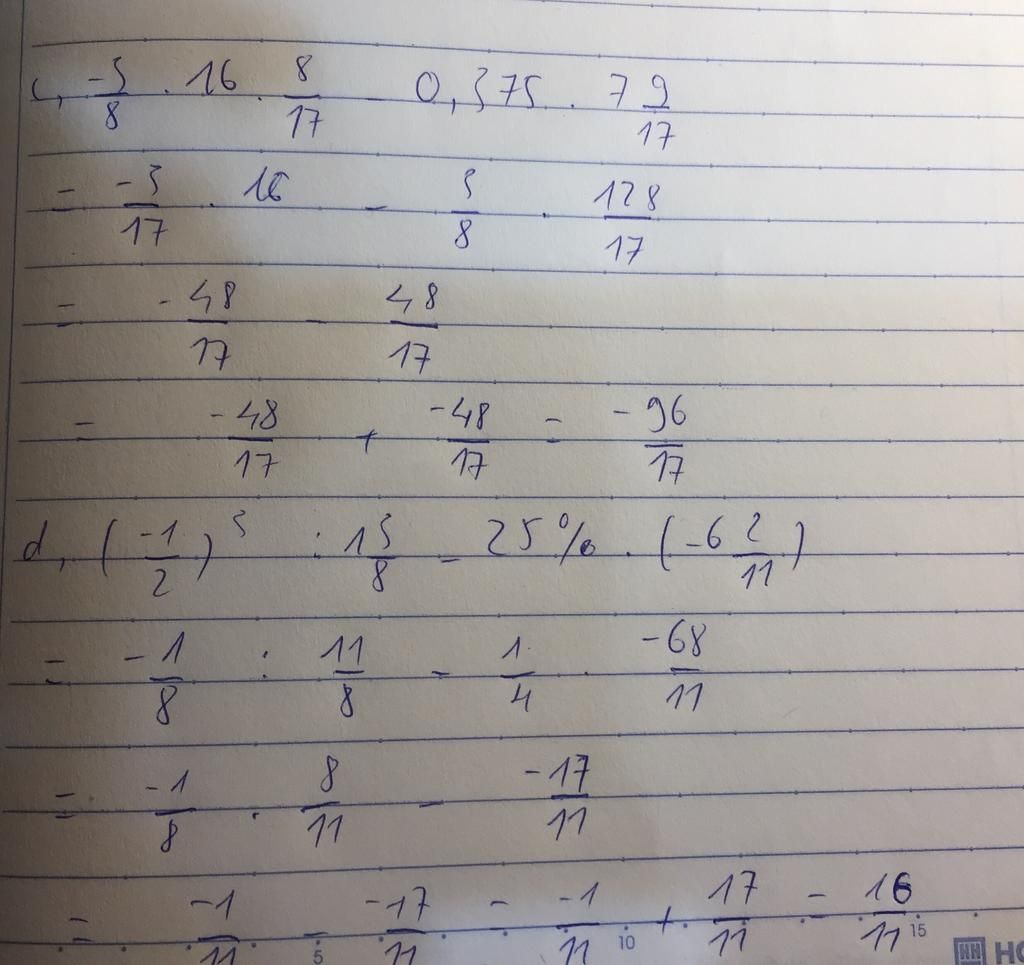 c, -3/8 . 16 . 8/17 - 0,375 . 7 9/17
= -3/17 . 16 - 3/8 . 128/17
= -48/17 - 48/17
= -48/17 + -48/17 = -96/17
d, (-1/2)^3 : 1 3/8 - 25% . (-6 2/11)
= -1/8 : 11/8 - 1/4 . -68/11
= -1/8 . 8/11 - -17/11
= -1/11 - -17/11 = -1/11 + 17/11 = 16/11
5 10 15